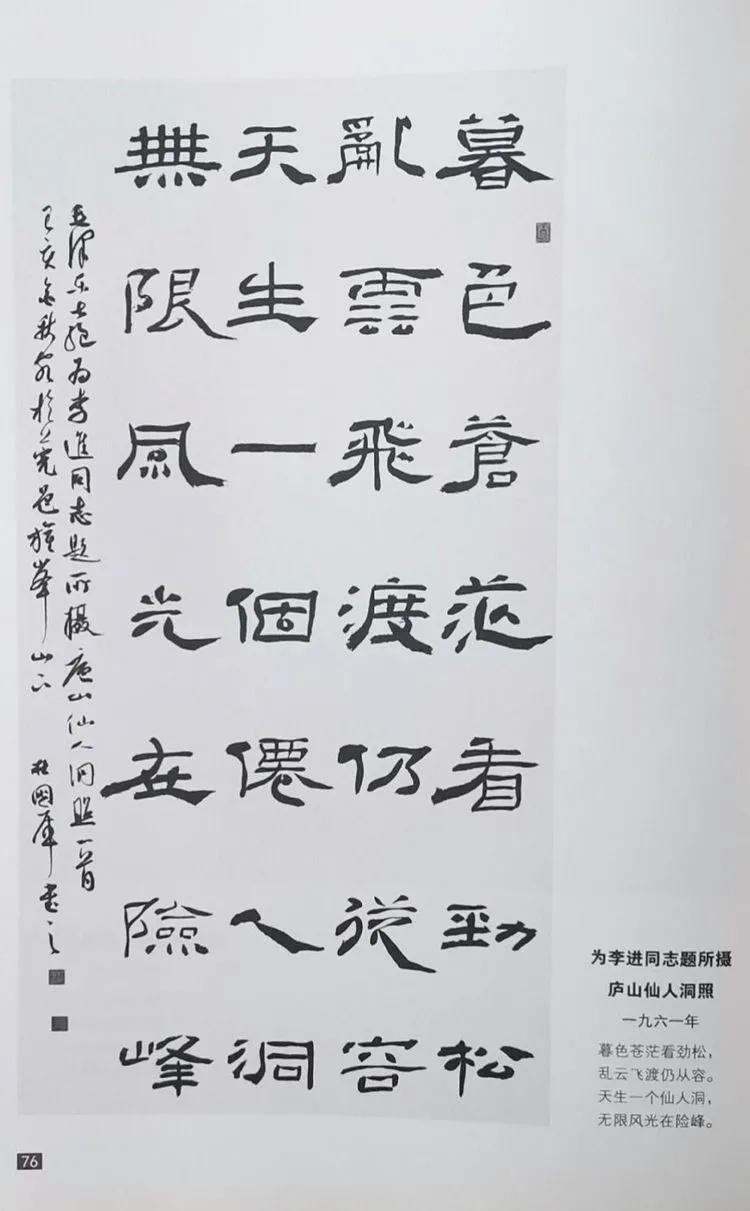 暮色蒼茫看勁松
亂雲飛渡仍從容
天生一個僊人洞
無限風光在險峰
毛泽东七绝为李進同志题所摄庐山仙人洞照一首
己亥金秋於莞邑旗峯山下 杜國庫書之
为李进同志题所摄
庐山仙人洞照
一九六一年
暮色苍茫看劲松，
乱云飞渡仍从容。
天生一个仙人洞，
无限风光在险峰。
76